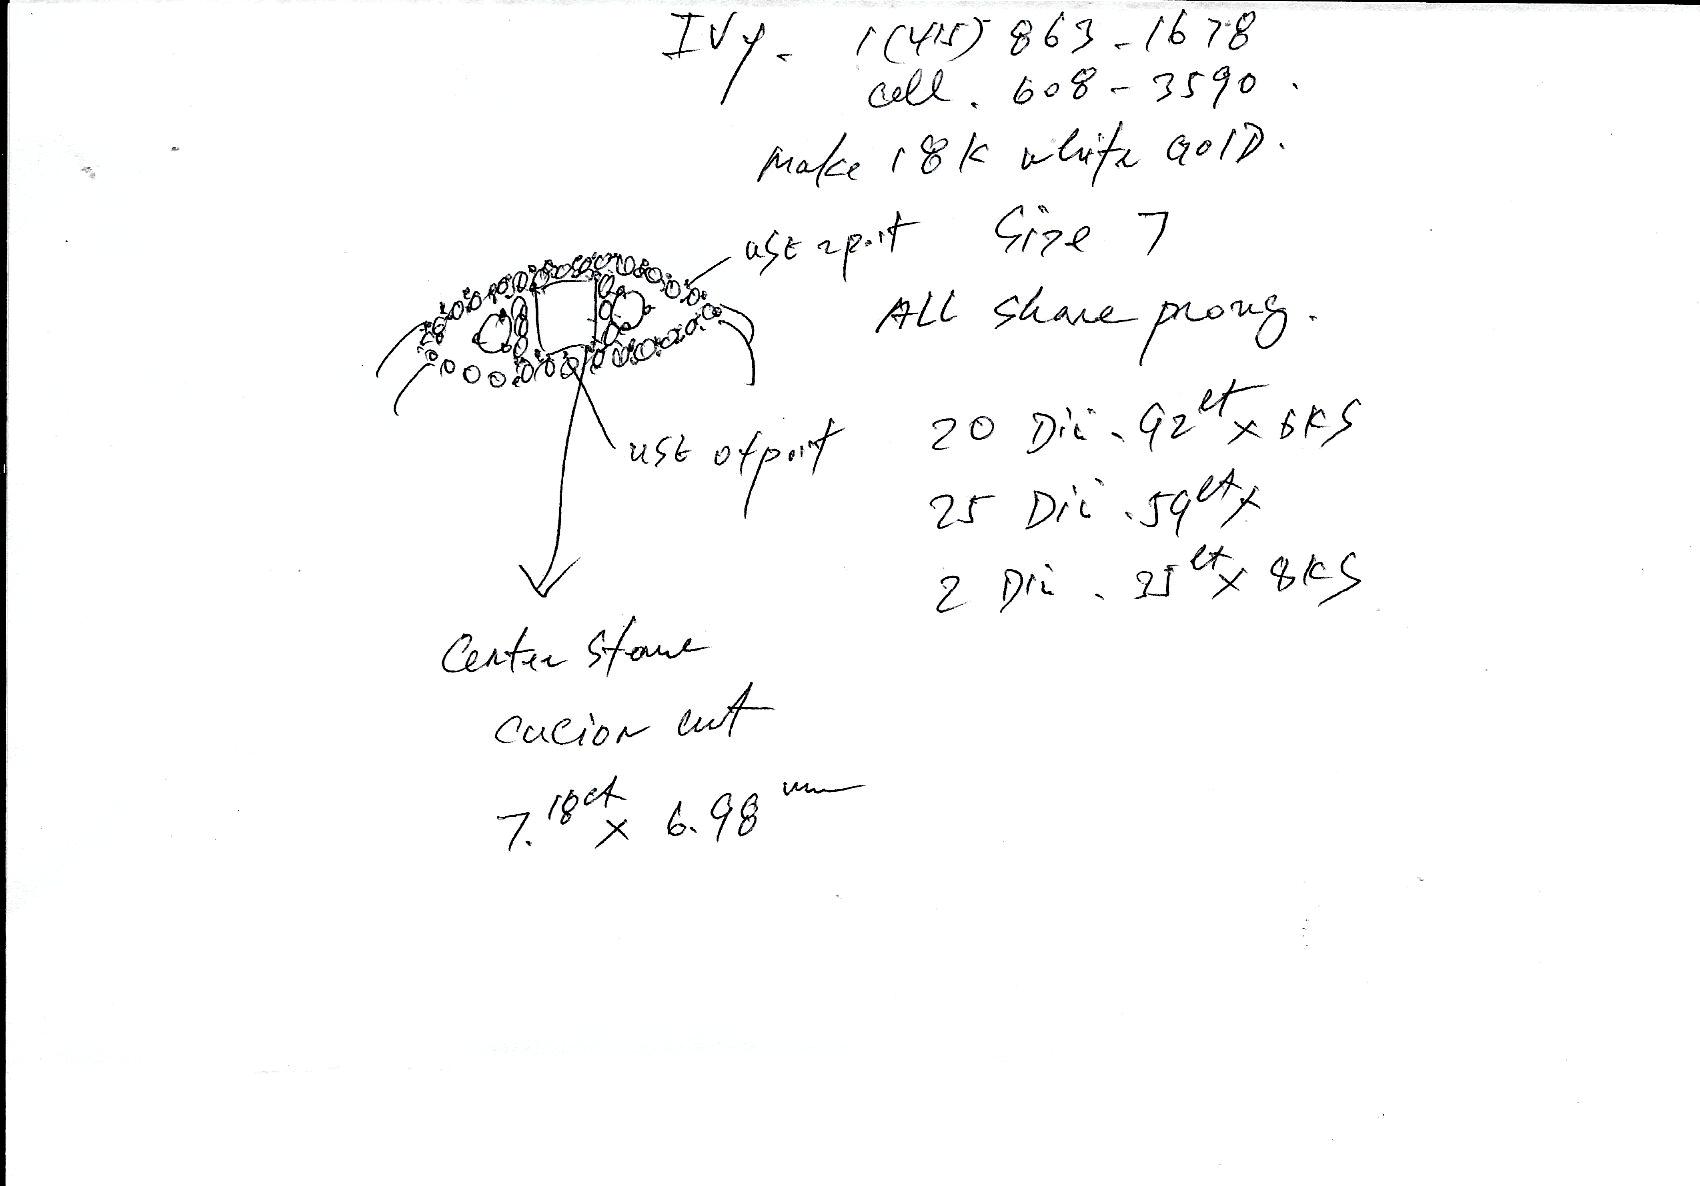 IVy. 1(415) 863-1678
cell. 608-3590.
Make 18K white GOLD.
USE 2point Size 7
ALL Share prong.
20 Dii .92ct x 6KS
USE of point
25 Dii .59ct x
2 Dii . ct x 8KS
Center Stone
cucion cut
7.18ct x 6.98 mm